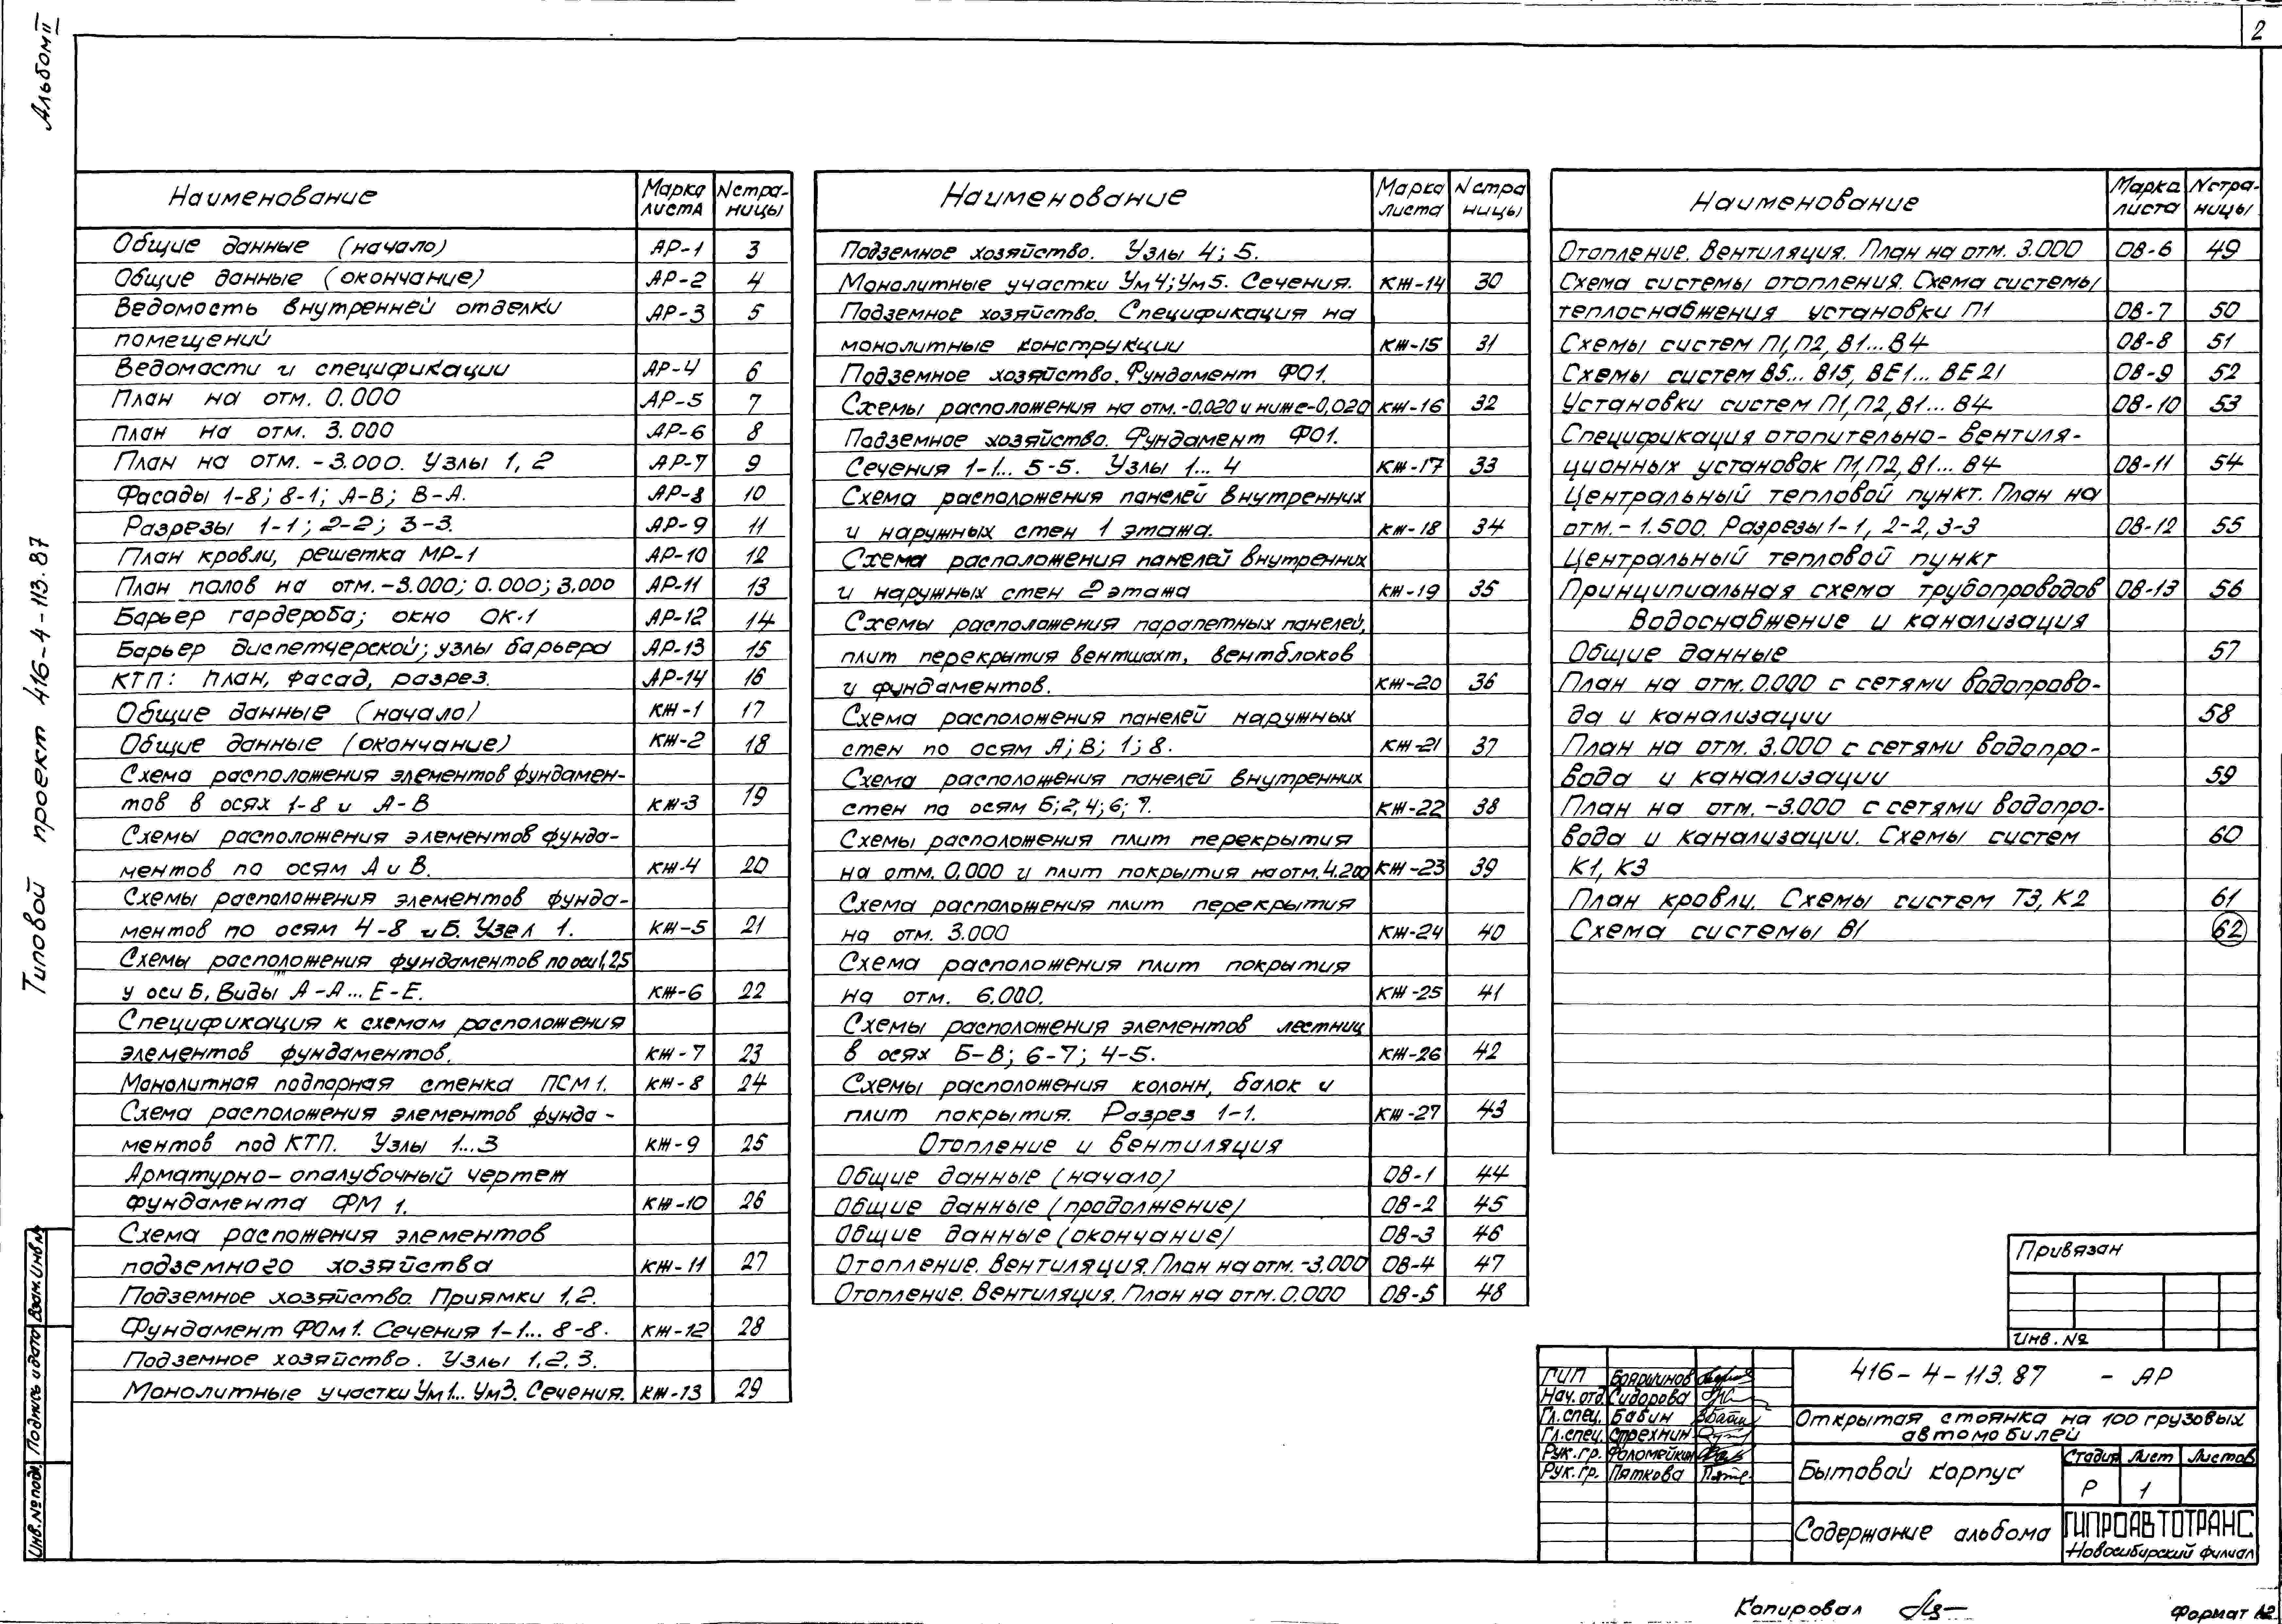 2
Альбом II
Типовой проект 416-4-113.87
Наименование Марка листа №страницы
Общие данные (начало) АР-1 3
Общие данные (окончание) АР-2 4
Ведомость внутренней отделки АР-3 5
помещений
Ведомости и спецификации АР-4 6
План на отм. 0.000 АР-5 7
План на отм. 3.000 АР-6 8
План на отм. -3.000. Узлы 1, 2 АР-7 9
Фасады 1-8; 8-1; А-В; В-А. АР-8 10
Разрезы 1-1; 2-2; 3-3. АР-9 11
План кровли, решетка МР-1 АР-10 12
План полов на отм. -3.000; 0.000; 3.000 АР-11 13
Барьер гардероба; окно ОК-1 АР-12 14
Барьер диспетчерской; узлы барьера АР-13 15
КТП: План, фасад, разрез. АР-14 16
Общие данные (начало) КЖ-1 17
Общие данные (окончание) КЖ-2 18
Схема расположения элементов фундамен-
тов в осях 1-8 и А-В КЖ-3 19
Схемы расположения элементов фунда-
ментов по осям А и В. КЖ-4 20
Схемы расположения элементов фунда-
ментов по осям 4-8 и Б. Узел 1. КЖ-5 21
Схемы расположения фундаментов по оси 1,2,5
у оси Б. Виды А-А... Е-Е. КЖ-6 22
Спецификация к схемам расположения
элементов фундаментов. КЖ-7 23
Монолитная подпорная стенка ПСМ1. КЖ-8 24
Схема расположения элементов фунда-
ментов под КТП. Узлы 1...3 КЖ-9 25
Арматурно-опалубочный чертеж
фундамента ФМ 1. КЖ-10 26
Схема распожения элементов
подземного хозяйства КЖ-11 27
Подземное хозяйство. Приямки 1,2.
Фундамент ФОм1. Сечения 1-1... 8-8. КЖ-12 28
Подземное хозяйство. Узлы 1,2,3.
Монолитные участки Ум1... Ум3. Сечения. КЖ-13 29
Наименование Марка листа №страницы
Подземное хозяйство. Узлы 4; 5.
Монолитные участки Ум4; Ум5. Сечения. КЖ-14 30
Подземное хозяйство. Спецификация на
монолитные конструкции КЖ-15 31
Подземное хозяйство. Фундамент Ф01.
Схемы расположения на отм. -0,020 и ниже -0,020 КЖ-16 32
Подземное хозяйство. Фундамент Ф01.
Сечения 1-1... 5-5. Узлы 1... 4 КЖ-17 33
Схема расположения панелей внутренних
и наружных стен 1 этажа. КЖ-18 34
Схема расположения панелей внутренних
и наружных стен 2 этажа КЖ-19 35
Схемы расположения парапетных панелей,
плит перекрытия вентшахт, вентблоков
и фундаментов. КЖ-20 36
Схема расположения панелей наружных
стен по осям А; В; 1; 8. КЖ-21 37
Схема расположения панелей внутренних
стен по осям Б; 2; 4; 6; 7. КЖ-22 38
Схемы расположения плит перекрытия
на отм. 0,000 и плит покрытия на отм. 4.200 КЖ-23 39
Схема расположения плит перекрытия
на отм. 3.000 КЖ-24 40
Схема расположения плит покрытия
на отм. 6.000. КЖ-25 41
Схемы расположения элементов лестниц
в осях Б-В; 6-7; 4-5. КЖ-26 42
Схемы расположения колонн, балок и
плит покрытия. Разрез 1-1. КЖ-27 43
Отопление и вентиляция
Общие данные (начало) ОВ-1 44
Общие данные (продолжение) ОВ-2 45
Общие данные (окончание) ОВ-3 46
Отопление. Вентиляция. План на отм. -3.000 ОВ-4 47
Отопление. Вентиляция. План на отм. 0.000 ОВ-5 48
Наименование Марка листа №страницы
Отопление. Вентиляция. План на отм. 3.000 ОВ-6 49
Схема системы отопления. Схема системы
теплоснабжения установки П1 ОВ-7 50
Схемы систем П1, П2, В1... В4 ОВ-8 51
Схемы систем В5... В15, ВЕ1... ВЕ21 ОВ-9 52
Установки систем П1, П2, В1... В4 ОВ-10 53
Спецификация отопительно-вентиля-
ционных установок П1, П2, В1... В4 ОВ-11 54
Центральный тепловой пункт. План на
отм. - 1.500. Разрезы 1-1, 2-2, 3-3 ОВ-12 55
Центральный тепловой пункт
Принципиальная схема трубопроводов ОВ-13 56
Водоснабжение и канализация
Общие данные 57
План на отм. 0.000 с сетями водопрово-
да и канализации 58
План на отм. 3.000 с сетями водопро-
вода и канализации 59
План на отм. -3.000 с сетями водопро-
вода и канализации. Схемы систем 60
К1, К3
План кровли. Схемы систем Т3, К2 61
Схема системы В1 62
Привязан
Инв. №
ГИП Бояршинов
Нач. отд. Сидорова
Гл. спец. Бабин
Гл. спец. Стрехнин
Рук. гр. Фоломейкин
Рук. гр. Пяткова
416-4-113.87 - АР
Открытая стоянка на 100 грузовых
автомобилей
Бытовой корпус
Стадия Лист Листов
Р 1
Содержание альбома
ГИПРОАВТОТРАНС
Новосибирский филиал
Инв. № подл. Подпись и дата Взам. Инв №
Копировал
Формат А2